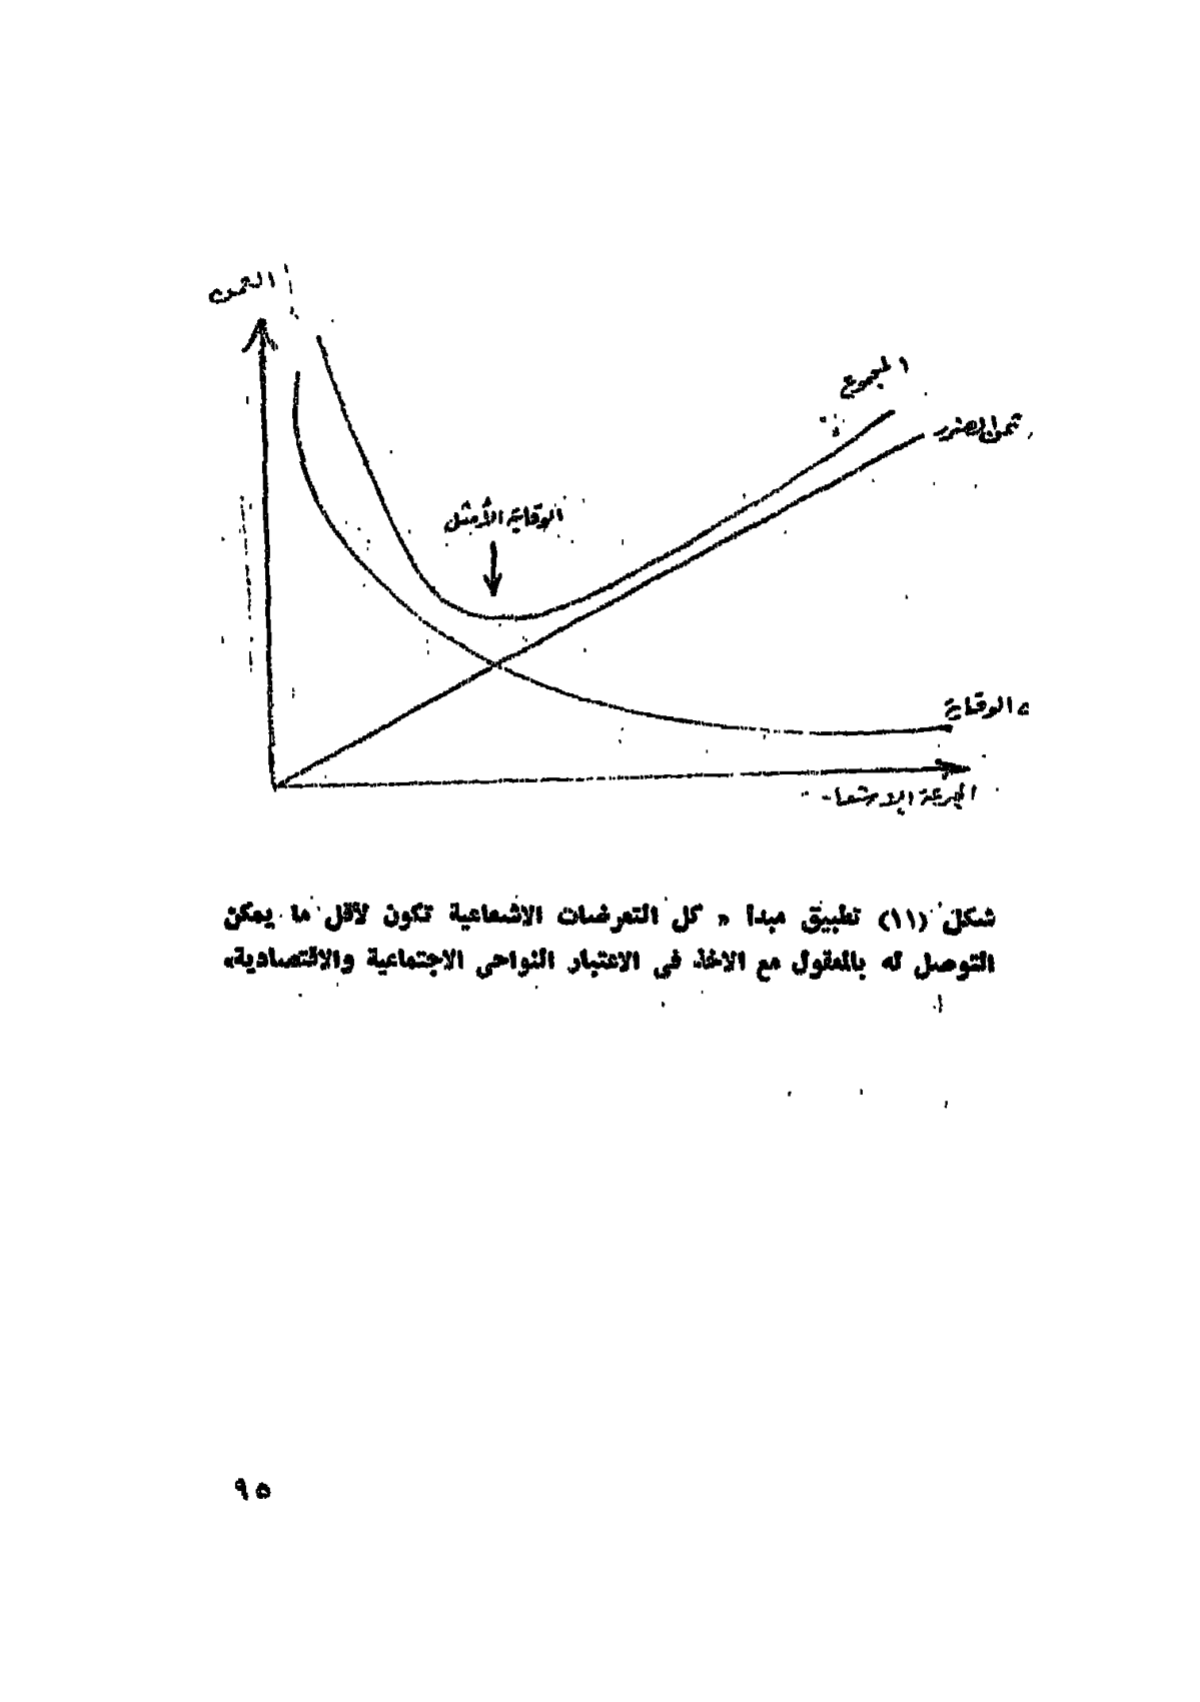 الثمن
المجموع
ثمن الضرر
الوقاية الأمثل
الوقاية
الجرعة الإشعا
شكل (١١) تطبيق مبدأ « كل التعرضات الاشعاعية تكون لأقل ما يمكن
التوصل له بالمعقول مع الاخذ في الاعتبار النواحى الاجتماعية والاقتصادية»
٩٥